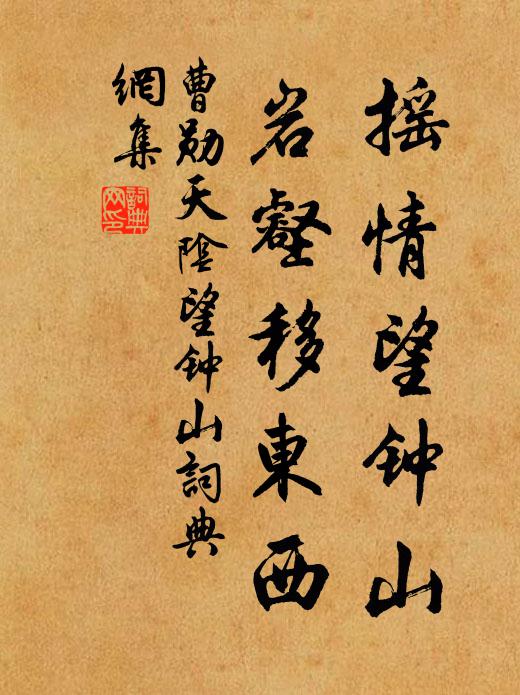 摇情望钟山
岩壑移東西
曹勋天陰望钟山詞典
網集
詞典
网印